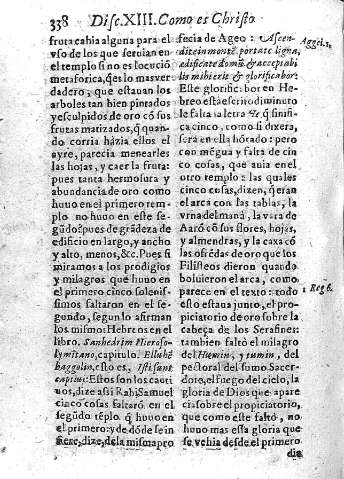 338 Disc.XIII. Como es Christo
fruta cahia alguna para el
vso de los que seruian en
el templo si no es locució
metaforica, q̃es lo mas ver
dadero, que estauan los
arboles tan bien pintados
y esculpidos de oro cõ sus
frutas matizados, q̃ quan
do corria házia ellos el
ayre, parecia menearles
las hojas, y caer la fruta:
pues tanta hermosura y
abundancia de oro como
huuo en el primero tem
plo no huuo en este se-
gũdo: pues de grãdeza de
edificio en largo, y ancho
y alto, menos, &c. Pues si
miramos a los prodigios
y milagros que huuo en
el primero cinco solenis-
simos faltaron en el se-
gundo, segun lo afirman
los mismos Hebreos en el
libro. Sanhedrim Hieroso-
lymitano, capitulo. Elluhẽ
haggolin, esto es, Isti sunt
captius: Estos son los cauti
uos, dize assi Rabi Samuel
cinco cosas faltarõ en el
segũdo tẽplo q̃ huuo en
el primero: y de dõde se in
fiere, dize, de la misma pro
fecia de Ageo: Ascen-
dite in montẽ portate ligna,
ædificate domũ & acceptabi
lis mihi erit & glorificabor:
Este glorificabor en He-
breo està escrito diminuto
le falta la letra he q̃ sinifi
ca cinco, como si dixera,
serà en ella hõrado: pero
con mẽgua y falta de cin
co cosas, que auia en el
otro templo: las quales
cinco cosas, dizen, q̃ eran
el arca con las tablas, la
vrna del manà, la vara de
Aarõ cõ sus flores, hojas,
y almendras, y la caxa cõ
las ofrẽdas de oro que los
Filisteos dieron quando
boluieron el arca, como
parece en el texto: todo
esto estaua junto, el pro-
piciatorio de oro sobre la
cabeça de los Serafines:
tambien faltò el milagro
del Hurim, y tumin, del
pectoral del sumo Sacer-
dote, el fuego del cielo, la
gloria de Dios que apare
cia sobre el propiciatorio,
que como este faltò, no
huuo mas esta gloria que
se vehia desde el primero
dia
Aggei. 1.
1 Reg 6.